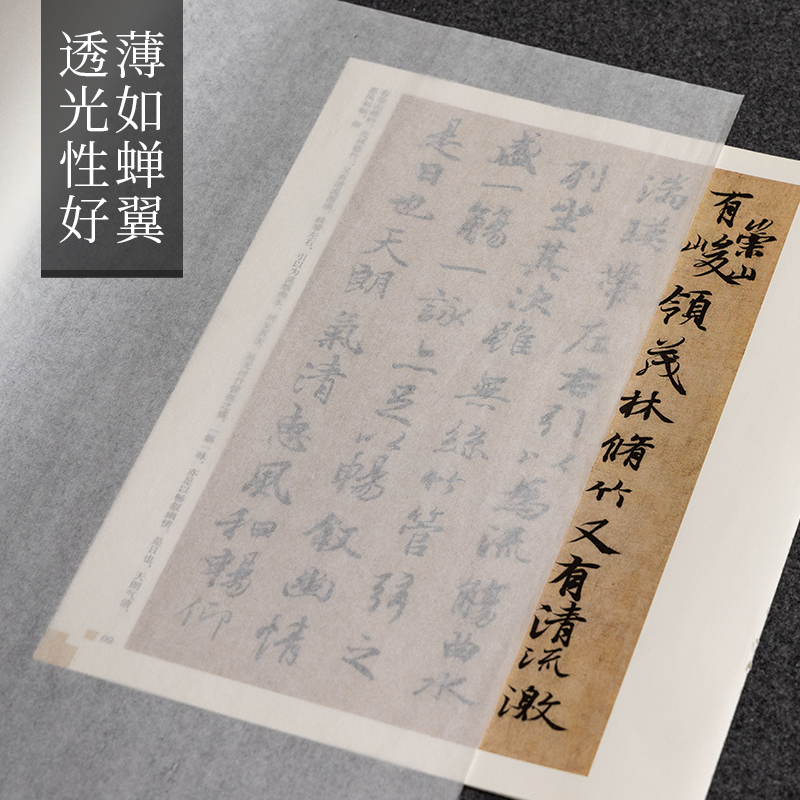 薄如蝉翼
透光性好
有崇山
峻領茂林脩竹又有清流激
湍暎帶左右引以為流觴曲水
列坐其次雖無絲竹管弦之
盛一觴一詠亦足以暢敘幽情
是日也天朗氣清惠風和暢仰